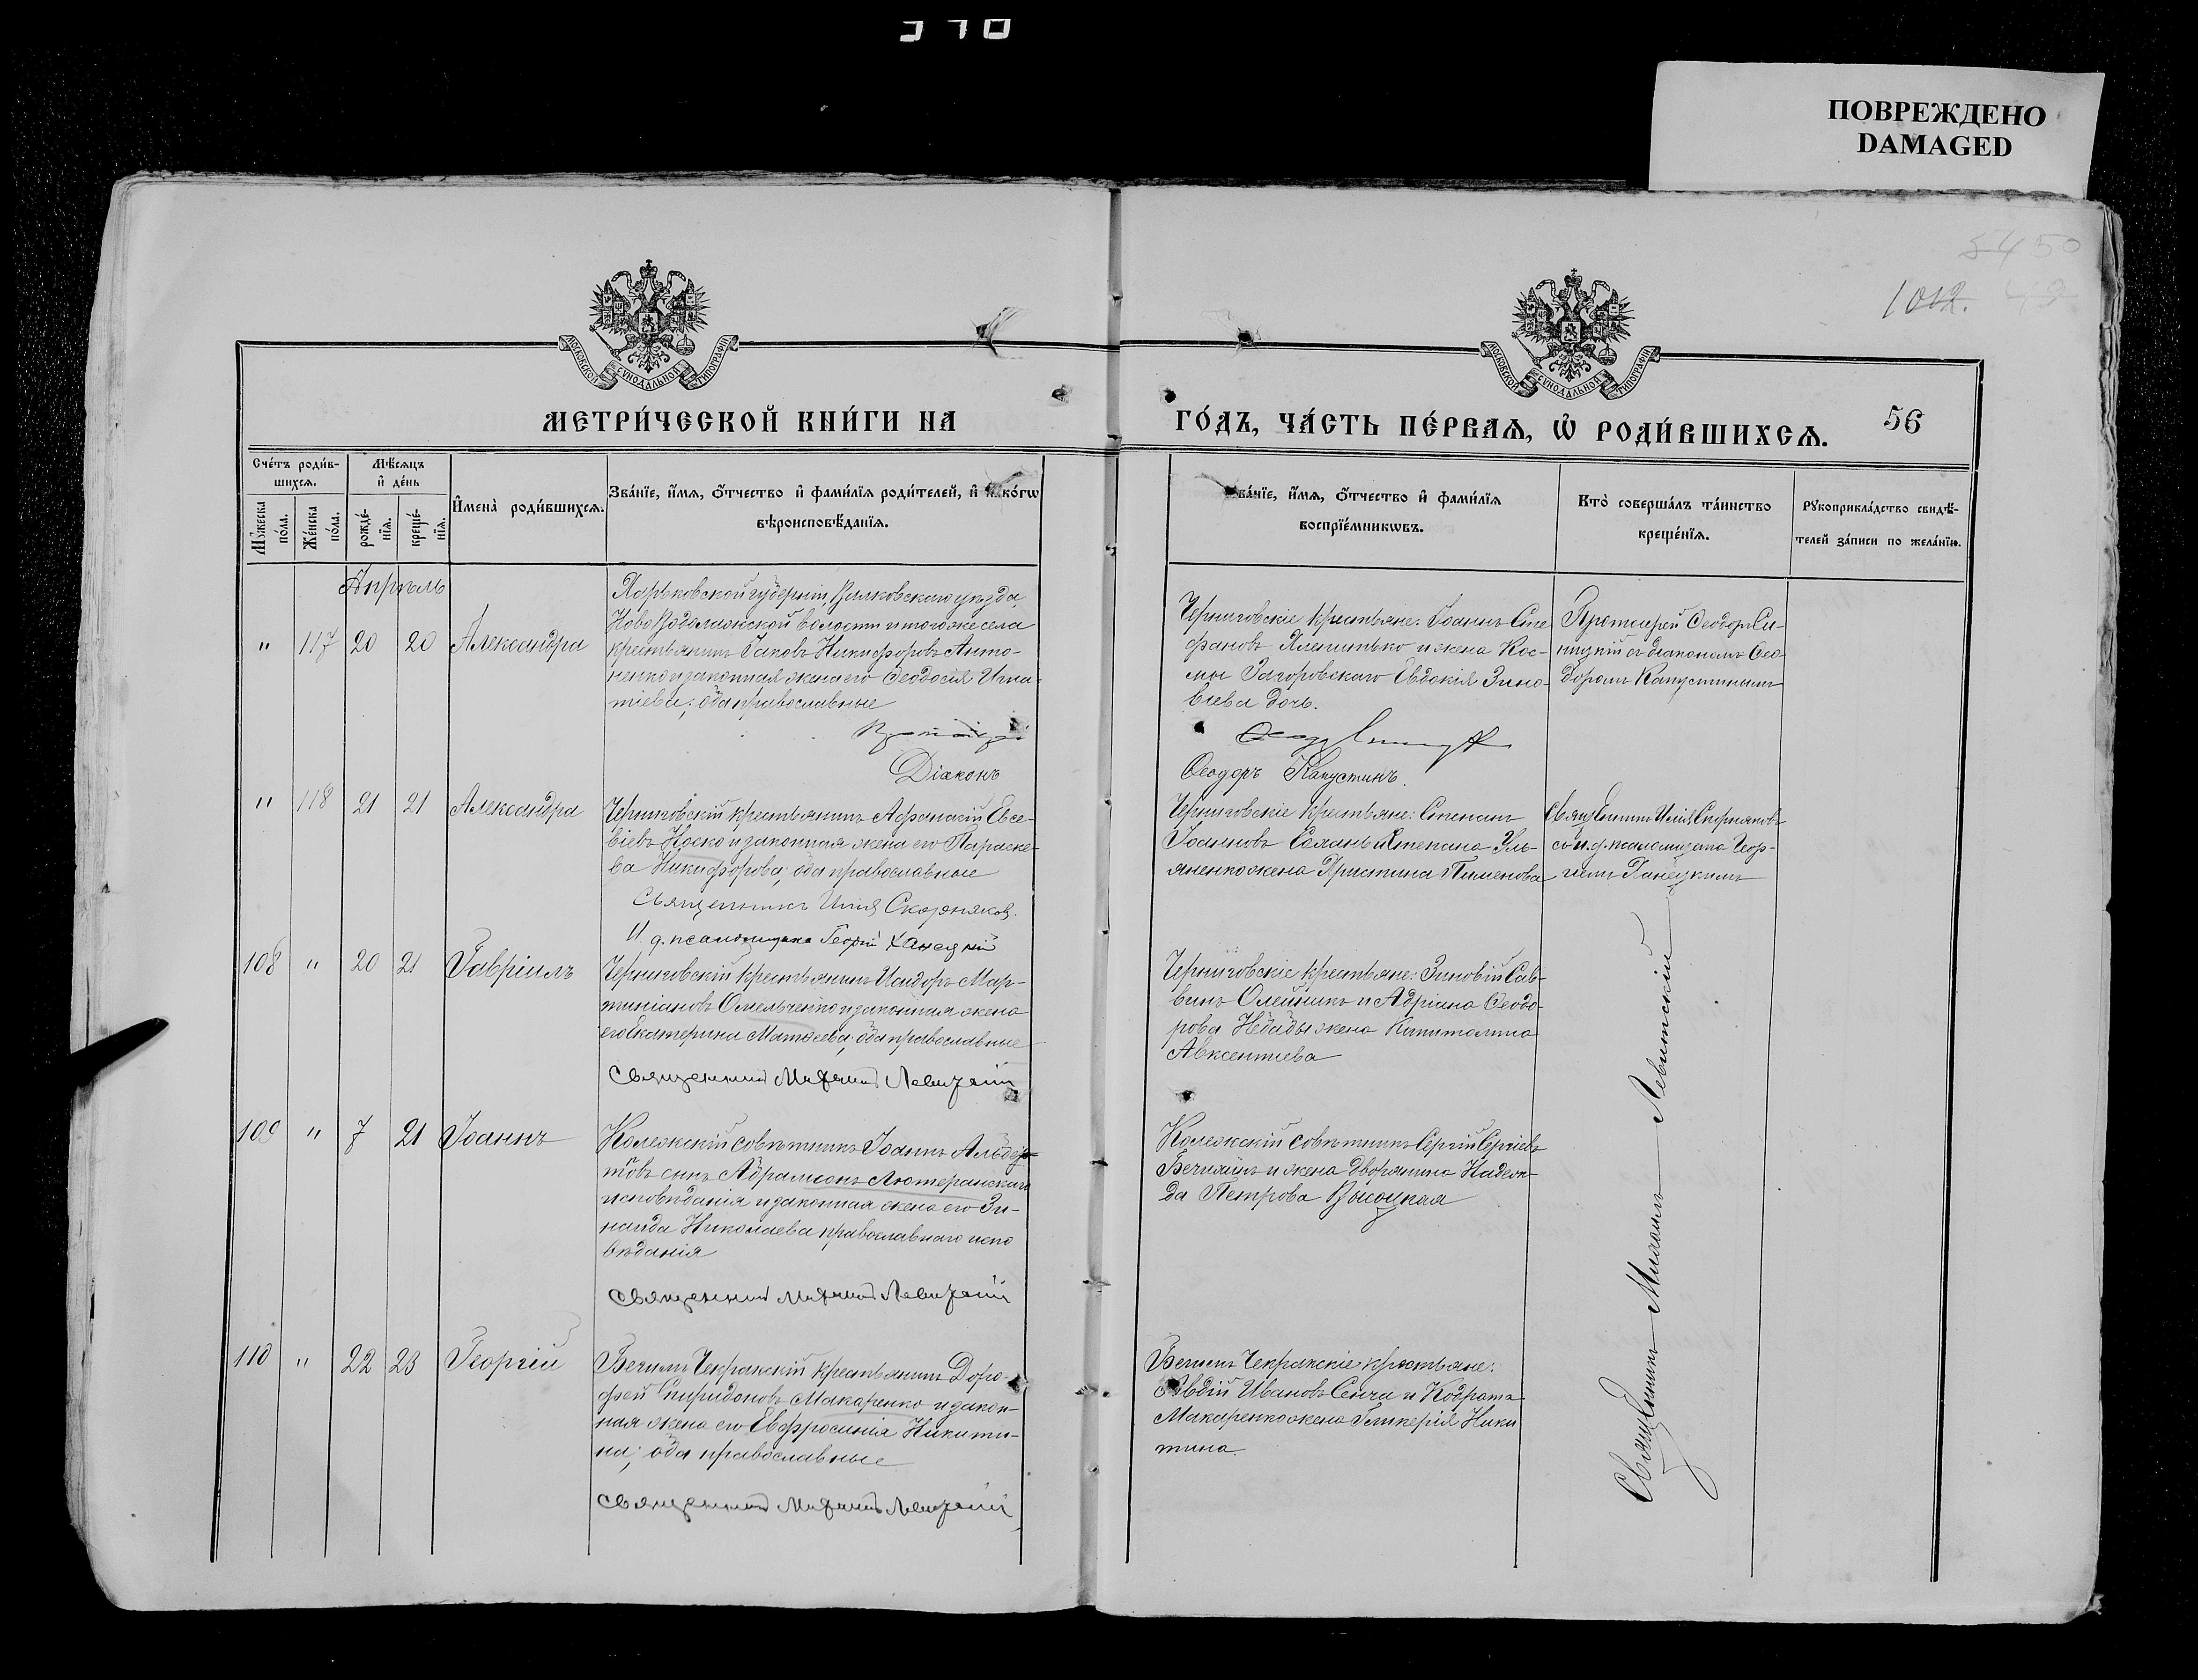 ПОВРЕЖДЕНО
DAMAGED
1012.
50
МОСКОВСКОЙ СѴНОДАЛЬНОЙ ТИПОГРАФІИ
МОСКОВСКОЙ СѴНОДАЛЬНОЙ ТИПОГРАФІИ
МЕТРИ́ЧЕСКОЙ КНИ́ГИ НА
ГО́ДЪ, ЧА́СТЬ ПЕ́РВАѦ, Ѡ҆ РОДИ́ВШИХСѦ.
56
Сче́тъ роди́в-
шихсѧ.
Мѣ́сѧцъ
и҆ де́нь
Мꙋ́жеска
по́ла.
Же́нска
по́ла.
рожде́-
нїѧ.
креще́-
нїѧ.
И҆мена̀ роди́вшихсѧ.
Зва́нїе, и҆́мѧ, ѻ҆́тчество и҆ фами́лїѧ роди́телей, и҆ како́гѡ
вѣроисповѣ́данїѧ.
Зва́нїе, и҆́мѧ, ѻ҆́тчество и҆ фами́лїѧ
воспрїе́мникѡвъ.
Кто̀ соверша́лъ та́инство
креще́нїѧ.
Рꙋкоприкла́дство свидѣ́-
телей за́писи по жела́нїю.
Апрѣль
" 117 20 20 Александра
Харьковской губерніи, Валковскаго уѣзда,
Ново Водолажской волости и того же села
крестьянинъ Іаковъ Никифоровъ Анто-
ненко и законная жена его Ѳеодосія Игна-
тіева; оба православные
Протоіерей
Діаконъ
Черниговскіе крестьяне: Іоаннъ Сте
фановъ Хлепитько и жена Кос-
мы Загоровскаго Евдокія Зино-
віева дочь.
Ѳеодоръ Капустинъ.
Протоіерей Ѳеодоръ Си-
ницкій съ діакономъ Ѳео-
доромъ Капустинымъ
" 118 21 21 Александра
Черниговскій крестьянинъ Аѳанасій Евсе-
віевъ Носко и законная жена его Параске-
ва Никифорова; оба православные
Священникъ Илія Скорняков.
И. д. псаломщика Георгій Ханецкій
Черниговскіе крестьяне: Степанъ
Іоанновъ Саланъ и Степана Уль-
яненко жена Христина Пименова
Священникъ Илія Скорняковъ
съ и. д. псаломщика Геор-
гіемъ Ганецкимъ
108 " 20 21 Гавріилъ
Черниговскій крестьянинъ Исидоръ Мар-
тиніановъ Омельченко и законная жена
его Екатерина Матѳеева; оба православные
Священникъ Михаилъ Левитскій
Черниговскіе крестьяне: Зиновій Сав-
винъ Олейникъ и Адріана Ѳеодо-
рова Небабы жена Капитолина
Авксентиева
109 " 7 21 Іоаннъ
Колежскій совѣтникъ Іоаннъ Альбер-
товъ сынъ Абрамсонъ Лютеранскаго
исповѣданія и законная жена его Зи-
наида Николаева православнаго испо
вѣданія
Священникъ Михаилъ Левитскій
Колежскій совѣтникъ Сергій Сергіевъ
Бечяйнъ и жена дворянина Надеж-
да Петрова Высоцкая
110 " 22 23 Георгій
Бегимъ Чекракскій крестьянинъ Доро-
фей Спиридоновъ Макаренко и закон-
ная жена его Евфросинія Никити-
на; оба православные
Священникъ Михаилъ Левитскій
Бегимъ Чекракскіе крестьяне:
Авдій Ивановъ Сенча и Кодрата
Макаренко жена Гликерія Ники
тина.
Священникъ Михаилъ Левитскій